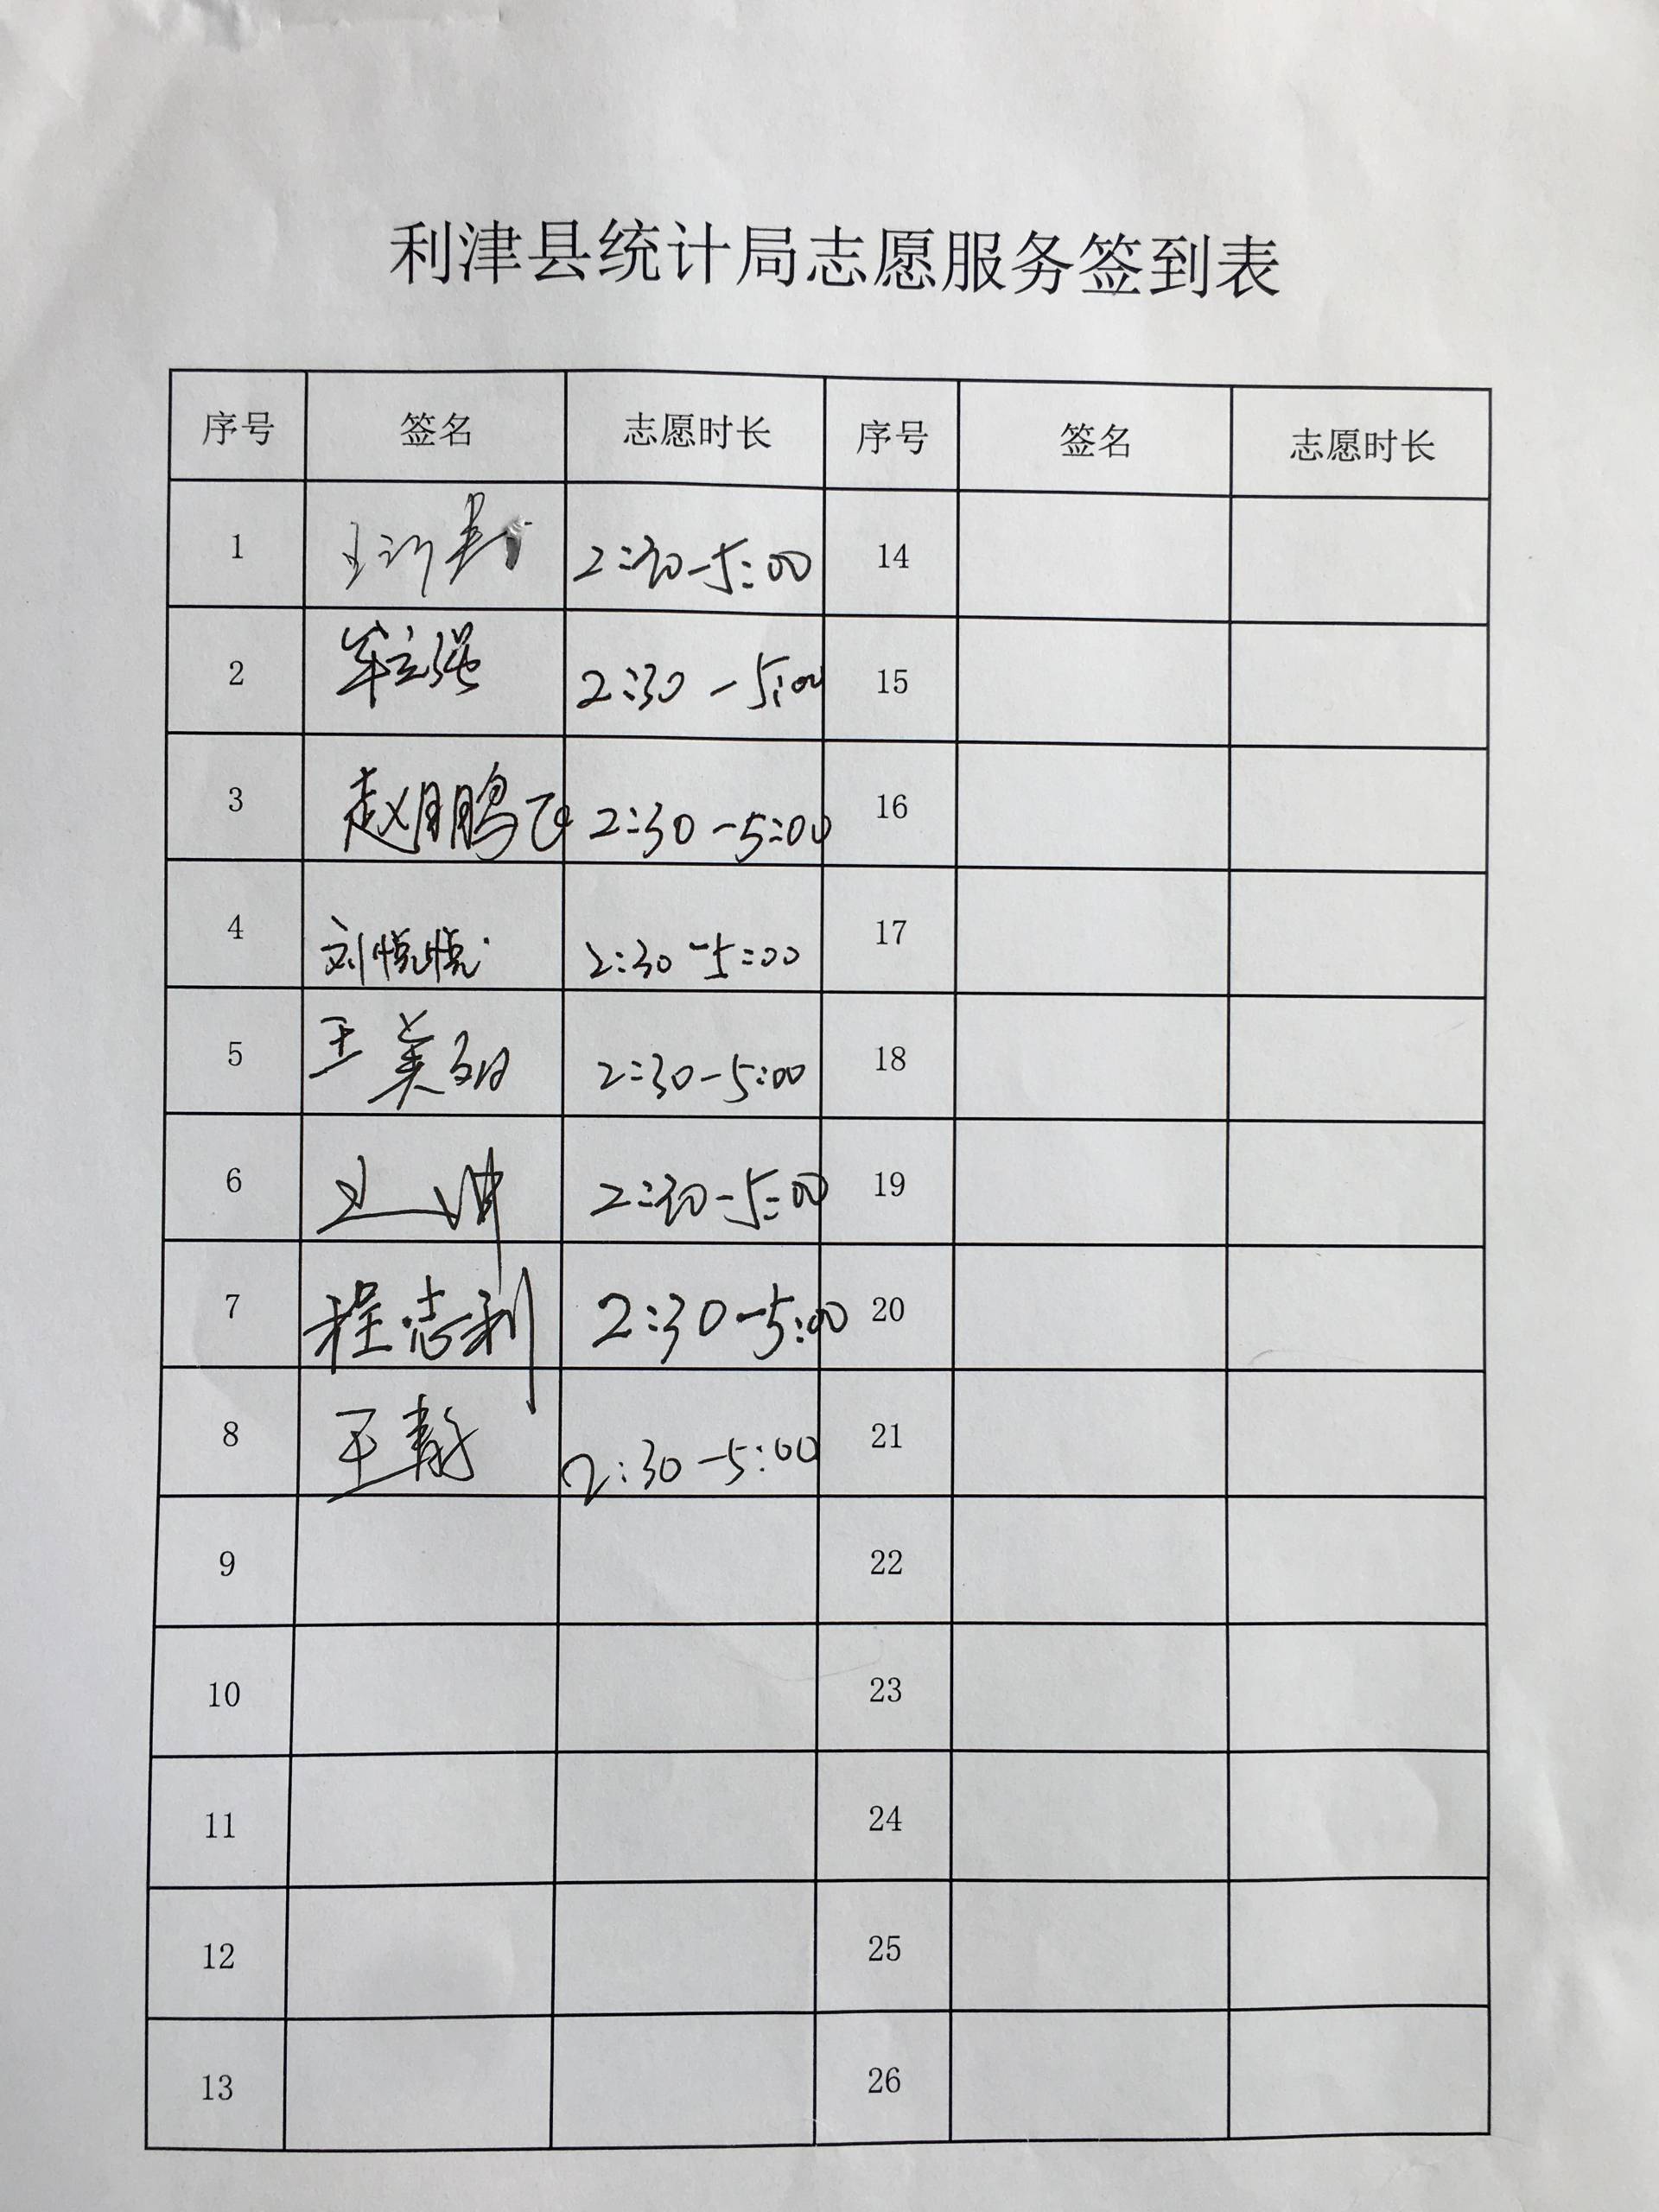 利津县统计局志愿服务签到表
序号 签名 志愿时长 序号 签名 志愿时长
1 2:30-5:00 14
2 牟立强 2:30-5:00 15
3 赵鹏飞 2:30-5:00 16
4 刘悦悦 2:30-5:00 17
5 王美丽 2:30-5:00 18
6 2:30-5:00 19
7 程志利 2:30-5:00 20
8 王静 2:30-5:00 21
9 22
10 23
11 24
12 25
13 26